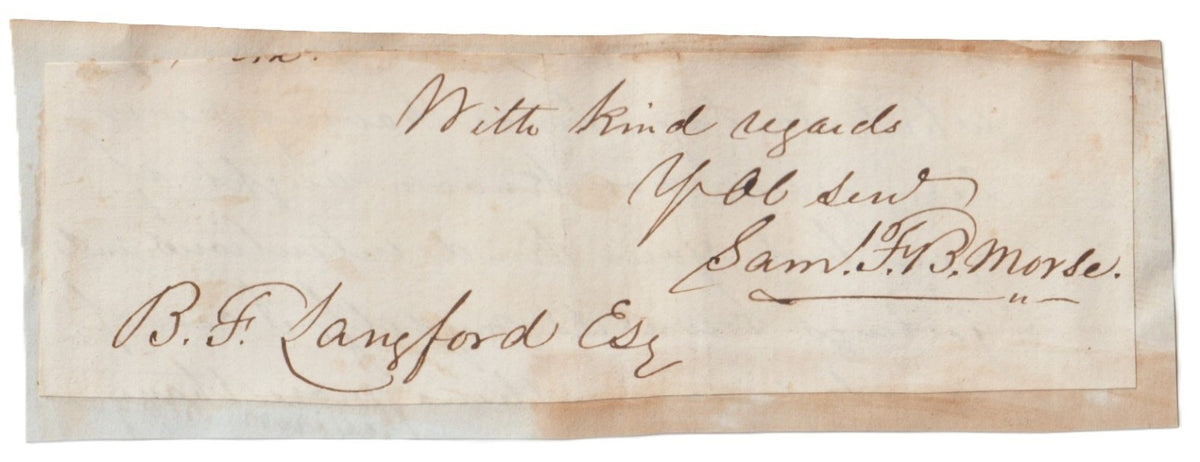 With kind regards
Yr Ob Servt
Saml. F. B. Morse.
B. F. Langford Esq